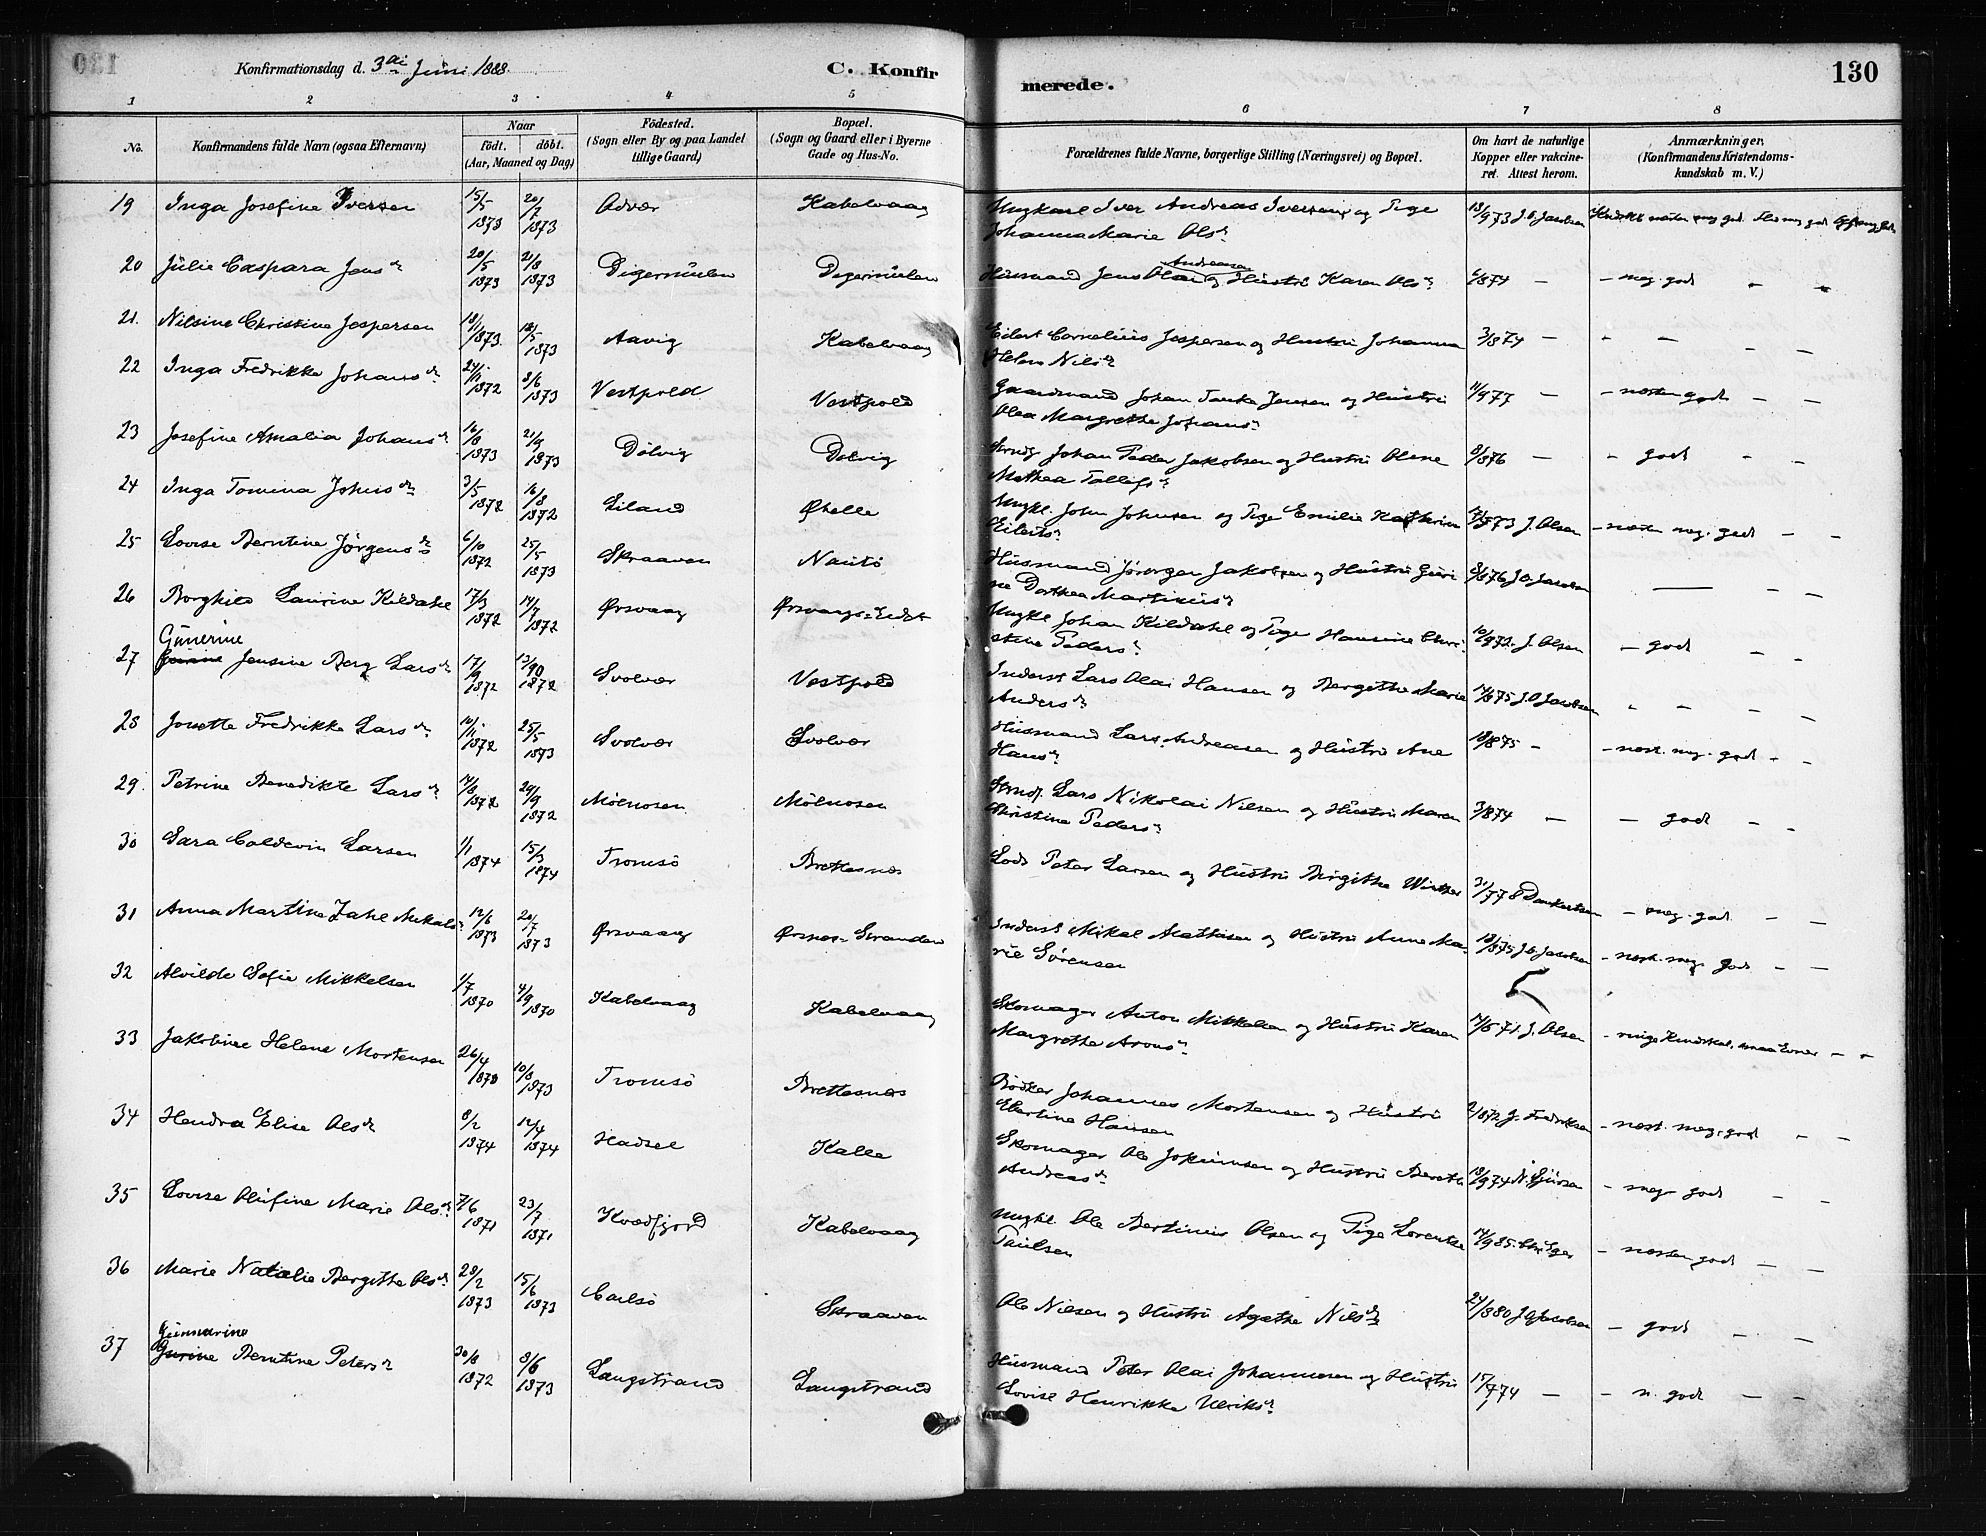 130
Konfirmationsdag d. 3die Juni 1888.
C. Konfir
merede.
130
1 2 3 4 5 6 7 8
No.
Konfirmandens fulde Navn (ogsaa Efternavn)
Naar
Født. døbt.
(Aar, Maaned og Dag)
Födested.
(Sogn eller By og paa Landet tillige Gaard)
Bopæl.
(Sogn og Gaard eller i Byerne Gade og Hus-No.
Forældrenes fulde Navne, borgerlige Stilling (Næringsvei) og Bopæl.
Om havt de naturlige Kopper eller vakcineret. Attest herom.
Anmærkninger.
(Konfirmandens Kristendomskundskab m. V.)
19 Inga Josefine Iversen 15/5 1873 20/7 1873 Kabelvaag Ungkarl Iver Andreas Iversen og Pige
Johanna Marie Olsd.
20 Julie Caspara Jensd. 20/5 1873 21/8 1873 Digermulen Digermulen Husmand Jens Olai Andreasen og Hustru Karen Olsd. /874 — – meg. god
21. Nilsine Christine Jespersen 1873 1873 Aavig Kabelvaag Eilert Cornelius Jespersen og Hustru Johanna
Helen Nilsd. 3/874 —
22 Inga Fredrikke Johansd. 24/11 1872 8/6 1873 Vestpold Vestpold Gaardmand Johan Jensen og Hustru
Olea Margrethe Johansd. 11/977 — – næsten god
23 Josefine Amalia Johansd. 16/8 1873 21/9 1873 Dölvig Dølvig Johan Peder Jakobsen og Hustru Olene
Mathea Tollefsd. 8/876 — god
24 Inga Tomina Johnsd. 3/5 1872 16/8 1872 Eiland Ørelle Ungkl. John Johnsen og Pige Emilie Kathrine
Eilertsd. J. Olsen – næsten meg. god
25 Lovise Berntine Jørgensd. 6/10 1872 25/5 1873 Skraaven Nautø Husmand Jørgen Jakobsen og Hustru Guri
ne Dorthea Martinusd. 8/676 J. O. Jacobsen
26 Borghild Laurine Kildahl 17/3 1872 14/7 1872 Ørsvaag Ørsvaags-Eidet Ungkl Johan Kildahl og Pige Hansine Chri-
stine Pedersd. 10/972. J. Olsen – god
Gunerine
27 Jensine Berg Larsd. 17/9 1872 13/10 1872 Svolvær Vestpold Inderst Lars Olai Hansen og Bergithe Marie
Andersd. 14/675 J. O. Jacobsen
28 Jonette Fredrikke Larsd. 10/11 1872 25/5 1873 Svolvær Svolvær Husmand Lars Andreasen og Hustru Ane
Hansd. 18/875 – – næst. meg. god
29. Petrine Benedikte Larsd. 14/8 1872 29/9 1872 Mölnosen Mölnosen Lars Nikolai Nilsen og Hustru Maren
Christine Pedersd. 3/874 — – god
30 Sara Coldevin Larsen 1/1 1874 15/3 1874 Tromsö Brettesnes Lods Peter Larsen og Hustru Birgitte Winther 31/778 Dankertsen – meg. god
31 Anna Martine Zahl Mikalsd. 12/6 1873 20/7 1873 Ørsvaag Ørsnes-Stranden Inderst Mikal Mathisen og Hustru Anne Ma-
rie Sörensen 18/875 J. O. Jacobsen – næst. meg. god
32 Alvilde Sofie Mikkelsen 1/7 1870 4/9 1870 Kabelvaag Kabelvaag Skomager Anton Mikkelsen og Hustru Karen
Margrethe Aronsd. 14/671 J. Olsen – ringe Kundskab, smaa Evner
33 Jakobine Helene Mortensen 26/4 1873 10/8 1873 Tromsö Brettesnes Bødker Johannes Mortensen og Hustru
Ebertine Hansen J. Fredriksen – næst. meg. god
34 Hendra Elise Olsd. 8/2 1874 12/4 1874 Hadsel Kalle Skomager Ole Jokumsen og Hustru Bereth
Andreasd. 18/974 – meg. god
35 Lovise Olufine Marie Olsd. 7/6 1871 23/7 1871 Kvædfjord Kabelvaag Ungkl. Ole Bertinus Olsen og Pige Lorentse
Paulsen – næsten god
36 Marie Natalie Bergitte Olsd. 28/2 1873 15/6 1873 Carlsö Skraaven Ole Nilsen og Hustru Agathe Nilsd. 24/880 J O Jacobsen – god
Gunnarine
37 Gurine Berntine Petersd. 30/8 1872 8/6 1873 Langstrand Langstrand Husmand Peter Olai Johannesen og Hustru
Lovise Henrikke Ulriksd. 17/774 — – n. god